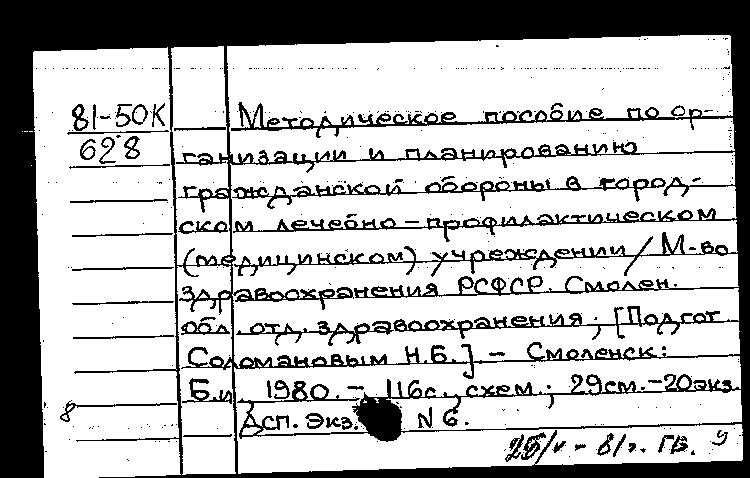 81-50К
628
Методическое пособие по ор-
ганизации и планированию
гражданской обороны в город-
ском лечебно-профилактическом
(медицинском) учреждении / М-во
здравоохранения РСФСР. Смолен.
обл. отд. здравоохранения; [Подгот.
Соломановым Н.Б.] - Смоленск:
Б.и., 1980. - 116с., схем.; 29см. - 20экз.
Дсп. Экз. N 6.
8
25/V - 81г. ГБ.